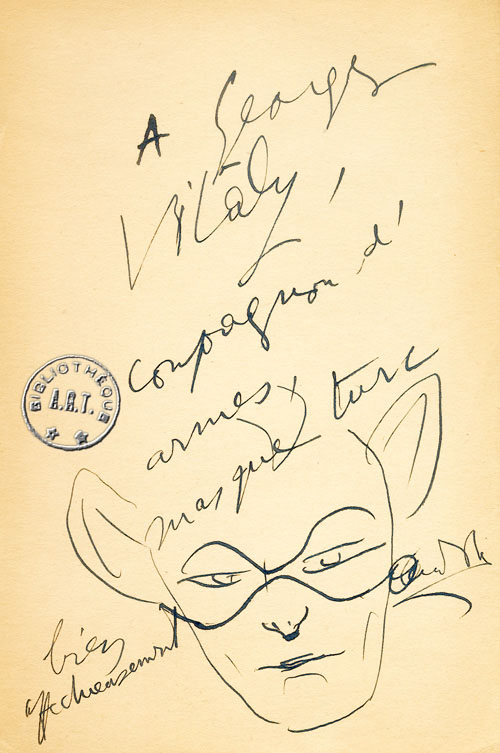 A Georges
Vitaly,
compagnon d'
armes, turc
masqué
bien
affectueusement
BIBLIOTHÈQUE
A.R.T.